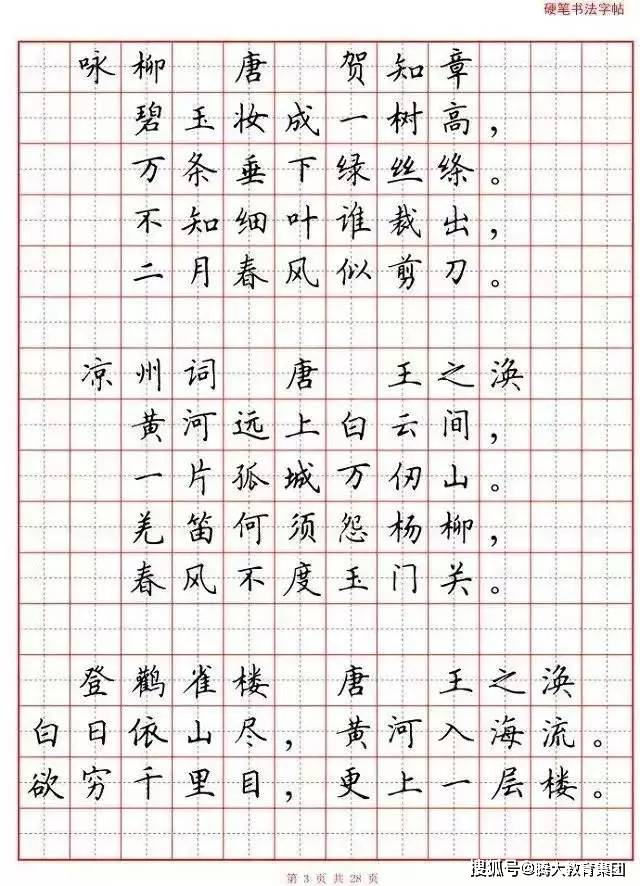 硬笔书法字帖
咏柳 唐 贺知章
碧玉妆成一树高，
万条垂下绿丝绦。
不知细叶谁裁出，
二月春风似剪刀。
凉州词 唐 王之涣
黄河远上白云间，
一片孤城万仞山。
羌笛何须怨杨柳，
春风不度玉门关。
登鹳雀楼 唐 王之涣
白日依山尽，黄河入海流。
欲穷千里目，更上一层楼。
第 3 页 共 28 页
搜狐号@腾大教育集团